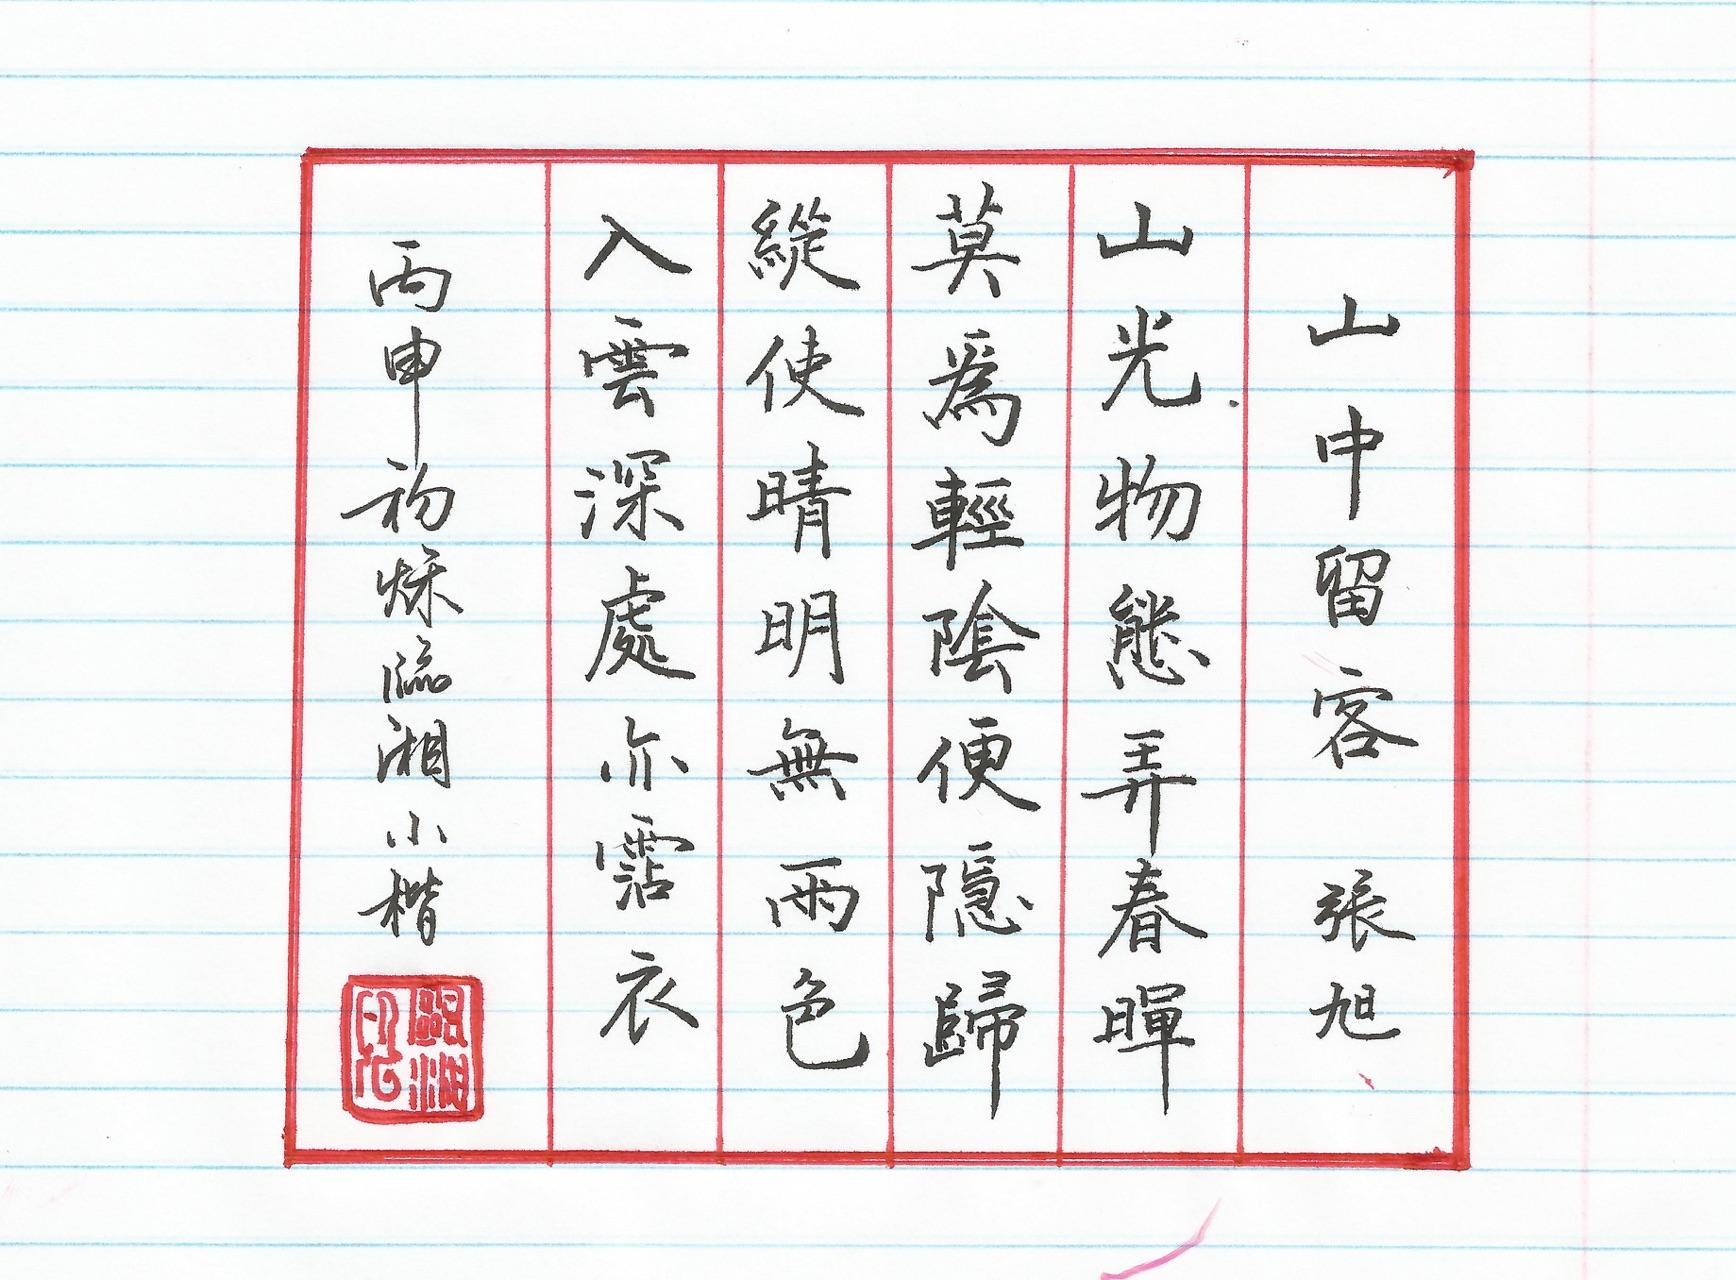 山中留客 張旭
山光物態弄春暉
莫爲輕陰便隱歸
縱使晴明無雨色
入雲深處亦霑衣
丙申初秌臨湘小楷
臨湘